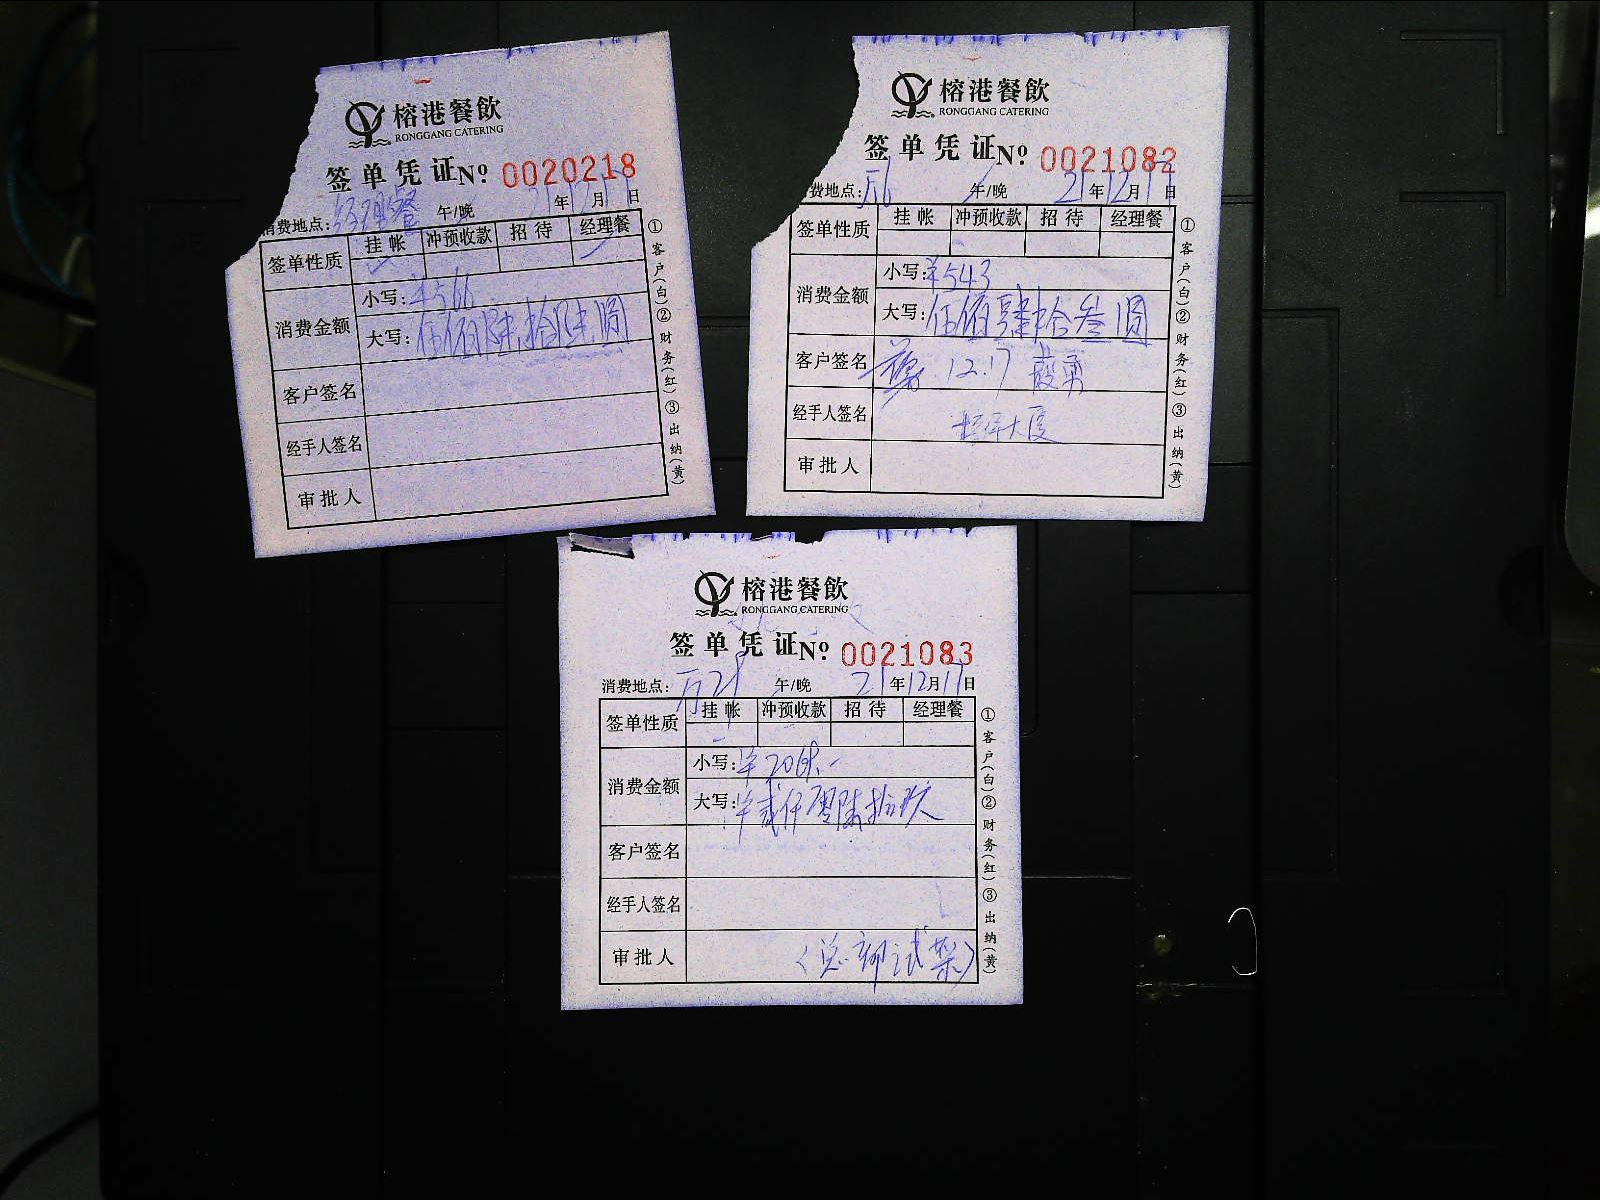 榕港餐飲
RONGGANG CATERING
签单凭证 Nº 0020218
消费地点: 经理餐 午/晚 年12月 日
签单性质 挂帐 冲预收款 招待 经理餐
消费金额 小写: ¥566
大写: 伍佰陆拾陆圆
客户签名
经手人签名
审批人
①客户(白)②财务(红)③出纳(黄)
榕港餐飲
RONGGANG CATERING
签单凭证 Nº 0021082
费地点: 午/晚 21年12月17日
签单性质 挂帐 冲预收款 招待 经理餐
消费金额 小写: ¥543
大写: 伍佰肆拾叁圆
客户签名 12.17
经手人签名 大厦
审批人
①客户(白)②财务(红)③出纳(黄)
榕港餐飲
RONGGANG CATERING
签单凭证 Nº 0021083
消费地点: 午/晚 21年12月17日
签单性质 挂帐 冲预收款 招待 经理餐
消费金额 小写: ¥2069.-
大写: ¥贰仟零陆拾玖
客户签名
经手人签名
审批人 (总部试菜)
①客户(白)②财务(红)③出纳(黄)